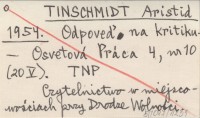 TINSCHMIDT Aristid
1954. Odpoveď na kritiku.
— Osvetová Práca 4, nr 10
(20 V). TNP
Czytelnictwo w miejsco-
wościach przy Drodze Wolności.